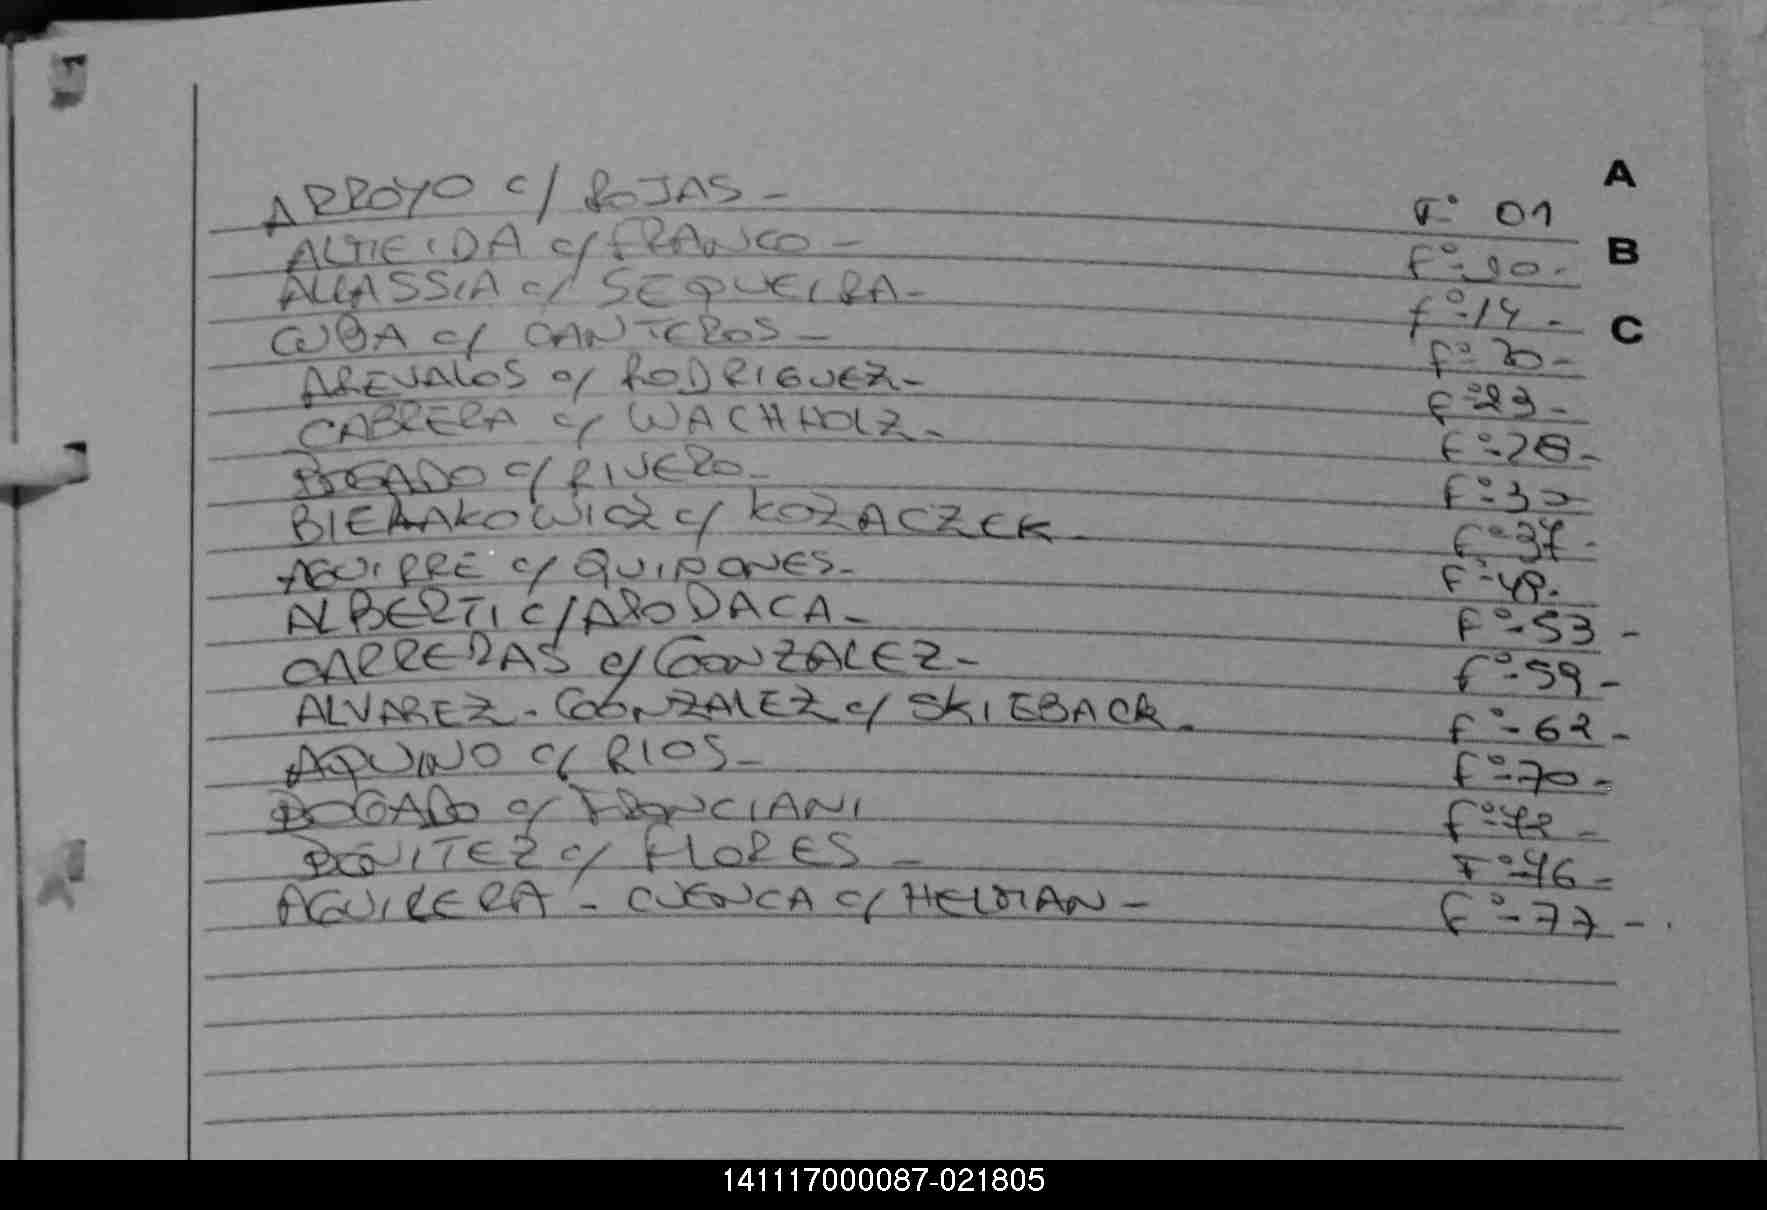 A
ARROYO c/ ROJAS - F° 01
B
ALMEIDA c/ FRANCO - F°- 10 -
ALLASSIA c/ SEQUEIRA - F°- 14 -
C
CUBA c/ CANTEROS - F°- 20 -
AREVALOS c/ RODRIGUEZ - F°- 23 -
CABRERA c/ WACHHOLZ - F°- 28 -
BOGADO c/ RIVERO - F°- 30
c/ KOZACZEK - F°- 37 -
AGUIRRE c/ QUIÑONES - F°- 49 -
ALBERTI c/ APODACA - F°- 53 -
CARRERAS c/ GONZALEZ - F°- 59 -
ALVAREZ - GONZALEZ c/ SKIEBACK - F°- 62 -
AQUINO c/ RIOS - F°- 70 -
BOGADO c/ FRANCIANI F°-
BENITEZ c/ FLORES - F°-
AGUILERA - CUENCA c/ HELMAN - F°- 77 -
141117000087-021805